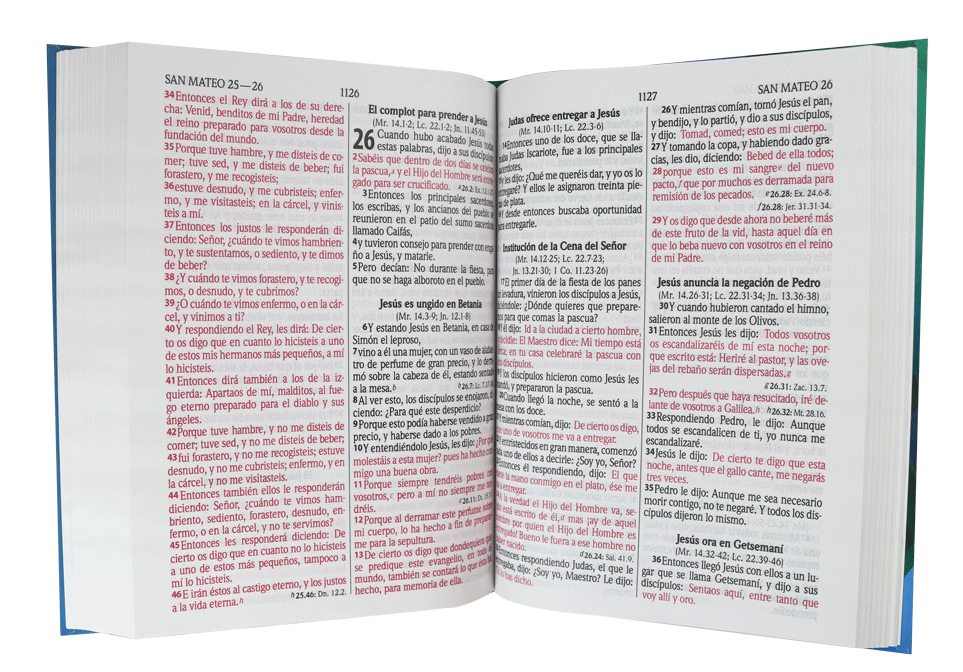 SAN MATEO 25—26
1126
34Entonces el Rey dirá a los de su dere-
cha: Venid, benditos de mi Padre, heredad
el reino preparado para vosotros desde la
fundación del mundo.
35Porque tuve hambre, y me disteis de co-
mer; tuve sed, y me disteis de beber; fui
forastero, y me recogisteis;
36estuve desnudo, y me cubristeis; enfer-
mo, y me visitasteis; en la cárcel, y vinis-
teis a mí.
37Entonces los justos le responderán di-
ciendo: Señor, ¿cuándo te vimos hambrien-
to, y te sustentamos, o sediento, y te dimos
de beber?
38¿Y cuándo te vimos forastero, y te recogi-
mos, o desnudo, y te cubrimos?
39¿O cuándo te vimos enfermo, o en la cár-
cel, y vinimos a ti?
40Y respondiendo el Rey, les dirá: De cier-
to os digo que en cuanto lo hicisteis a uno
de estos mis hermanos más pequeños, a mí
lo hicisteis.
41Entonces dirá también a los de la iz-
quierda: Apartaos de mí, malditos, al fue-
go eterno preparado para el diablo y sus
ángeles.
42Porque tuve hambre, y no me disteis de
comer; tuve sed, y no me disteis de beber;
43fui forastero, y no me recogisteis; estuve
desnudo, y no me cubristeis; enfermo, y en
la cárcel, y no me visitasteis.
44Entonces también ellos le responderán
diciendo: Señor, ¿cuándo te vimos ham-
briento, sediento, forastero, desnudo, en-
fermo, o en la cárcel, y no te servimos?
45Entonces les responderá diciendo: De
cierto os digo que en cuanto no lo hicisteis
a uno de estos más pequeños, tampoco a
mí lo hicisteis.
46E irán éstos al castigo eterno, y los justos
a la vida eterna.h h 25.46: Dn. 12.2.
El complot para prender a Jesús
(Mr. 14.1-2; Lc. 22.1-2; Jn. 11.45-53)
26 Cuando hubo acabado Jesús todas
estas palabras, dijo a sus discípulos:
2Sabéis que dentro de dos días se celebra
la pascua,a y el Hijo del Hombre será entre-
gado para ser crucificado. a 26.2: Ex. 12.1-27.
3Entonces los principales sacerdotes,
los escribas, y los ancianos del pueblo se
reunieron en el patio del sumo sacerdote
llamado Caifás,
4y tuvieron consejo para prender con enga-
ño a Jesús, y matarle.
5Pero decían: No durante la fiesta, para
que no se haga alboroto en el pueblo.
Jesús es ungido en Betania
(Mr. 14.3-9; Jn. 12.1-8)
6Y estando Jesús en Betania, en casa de
Simón el leproso,
7vino a él una mujer, con un vaso de alabas-
tro de perfume de gran precio, y lo derra-
mó sobre la cabeza de él, estando sentado
a la mesa.b b 26.7: Lc. 7.37-38.
8Al ver esto, los discípulos se enojaron, di-
ciendo: ¿Para qué este desperdicio?
9Porque esto podía haberse vendido a gran
precio, y haberse dado a los pobres.
10Y entendiéndolo Jesús, les dijo: ¿Por qué
molestáis a esta mujer? pues ha hecho con-
migo una buena obra.
11Porque siempre tendréis pobres con
vosotros,c pero a mí no siempre me ten-
dréis. c 26.11: Dt. 15.11.
12Porque al derramar este perfume sobre
mi cuerpo, lo ha hecho a fin de preparar-
me para la sepultura.
13De cierto os digo que dondequiera que
se predique este evangelio, en todo el
mundo, también se contará lo que ésta ha
hecho, para memoria de ella.
1127
SAN MATEO 26
Judas ofrece entregar a Jesús
(Mr. 14.10-11; Lc. 22.3-6)
14Entonces uno de los doce, que se lla-
maba Judas Iscariote, fue a los principales
sacerdotes,
y les dijo: ¿Qué me queréis dar, y yo os lo
entregaré? Y ellos le asignaron treinta pie-
zas de plata.
Y desde entonces buscaba oportunidad
para entregarle.
Institución de la Cena del Señor
(Mr. 14.12-25; Lc. 22.7-23;
Jn. 13.21-30; 1 Co. 11.23-26)
El primer día de la fiesta de los panes
sin levadura, vinieron los discípulos a Jesús,
diciéndole: ¿Dónde quieres que prepare-
mos para que comas la pascua?
Y él dijo: Id a la ciudad a cierto hombre,
y decidle: El Maestro dice: Mi tiempo está
cerca; en tu casa celebraré la pascua con
mis discípulos.
Y los discípulos hicieron como Jesús les
mandó, y prepararon la pascua.
20Cuando llegó la noche, se sentó a la
mesa con los doce.
Y mientras comían, dijo: De cierto os digo,
que uno de vosotros me va a entregar.
Y entristecidos en gran manera, comenzó
cada uno de ellos a decirle: ¿Soy yo, Señor?
Entonces él respondiendo, dijo: El que
mete la mano conmigo en el plato, ése me
va a entregar.
A la verdad el Hijo del Hombre va, se-
gún está escrito de él,d mas ¡ay de aquel
hombre por quien el Hijo del Hombre es
entregado! Bueno le fuera a ese hombre no
haber nacido. d 26.24: Sal. 41.9.
Entonces respondiendo Judas, el que le
entregaba, dijo: ¿Soy yo, Maestro? Le dijo:
Tú lo has dicho.
26Y mientras comían, tomó Jesús el pan,
y bendijo, y lo partió, y dio a sus discípulos,
y dijo: Tomad, comed; esto es mi cuerpo.
27Y tomando la copa, y habiendo dado gra-
cias, les dio, diciendo: Bebed de ella todos;
28porque esto es mi sangree del nuevo
pacto,f que por muchos es derramada para
remisión de los pecados. e 26.28: Ex. 24.6-8.
f 26.28: Jer. 31.31-34.
29Y os digo que desde ahora no beberé más
de este fruto de la vid, hasta aquel día en
que lo beba nuevo con vosotros en el reino
de mi Padre.
Jesús anuncia la negación de Pedro
(Mr. 14.26-31; Lc. 22.31-34; Jn. 13.36-38)
30Y cuando hubieron cantado el himno,
salieron al monte de los Olivos.
31Entonces Jesús les dijo: Todos vosotros
os escandalizaréis de mí esta noche; por-
que escrito está: Heriré al pastor, y las ove-
jas del rebaño serán dispersadas.g
g 26.31: Zac. 13.7.
32Pero después que haya resucitado, iré de-
lante de vosotros a Galilea.h h 26.32: Mt. 28.16.
33Respondiendo Pedro, le dijo: Aunque
todos se escandalicen de ti, yo nunca me
escandalizaré.
34Jesús le dijo: De cierto te digo que esta
noche, antes que el gallo cante, me negarás
tres veces.
35Pedro le dijo: Aunque me sea necesario
morir contigo, no te negaré. Y todos los dis-
cípulos dijeron lo mismo.
Jesús ora en Getsemaní
(Mr. 14.32-42; Lc. 22.39-46)
36Entonces llegó Jesús con ellos a un lu-
gar que se llama Getsemaní, y dijo a sus
discípulos: Sentaos aquí, entre tanto que
voy allí y oro.